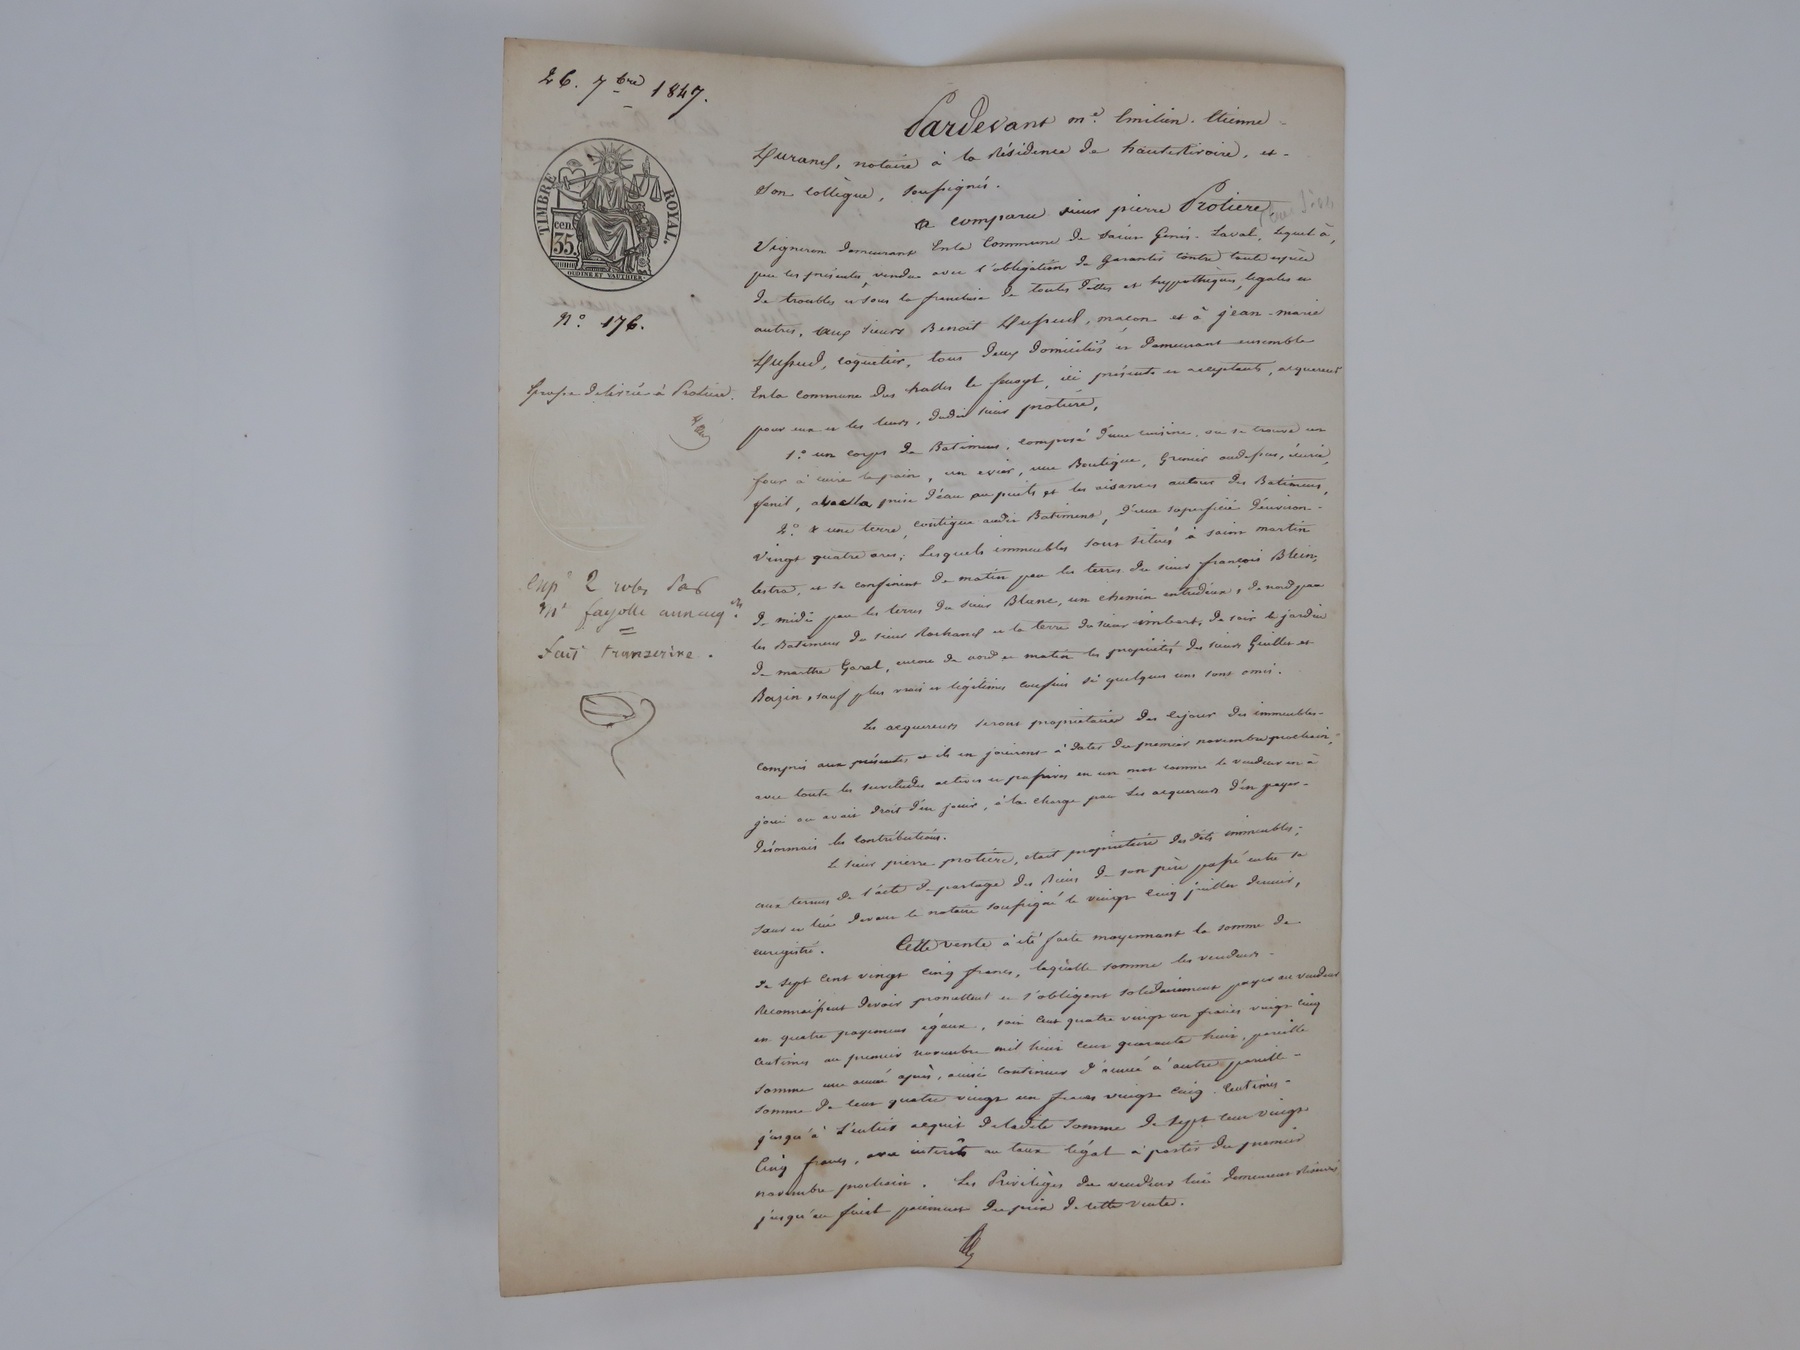 26. 7bre 1847.
TIMBRE ROYAL.
35 cen
OUDINÉ ET VAUTHIER
N.° 176.
Grosse delivrée à Protière.
Expn 2 roles
mt fayolle aux acqrs
Fait transcrire.
Pardevant me. Emilien. Etienne
Durand, notaire à la Résidence de hauterivoire, et
son collègue, soussignés.
a comparu sieur pierre Protière
Vigneron demeurant Enla Commune de Saint Genis. Laval, lequel à,
par les présentes, vendu avec l'obligation de garantir contre toute espèce
de troubles et sous la franchise de toutes dettes et hyppothèques, légales et
autres, aux sieurs Benoit Dussud, maçon et à jean-marie
Dussud, coquetier, tous deux domiciliés et demeurant ensemble
Enla commune des halles le fenoyl, ici présents et acceptants, acquereurs
pour eux et les leurs, dudit sieur protière,
1.° un corps de Batiment, composé d'une cuisine, où se trouve un
four à cuire le pain, un evier, une Boutique, Grenier audessus, écurie,
fenil, avec la prise d'eau au puits et les aisances autour des Batiments,
2.° & une terre, contigue audit Batiment, d'une superficie d'environ
vingt quatre ares; lesquels immeubles sont situés à saint martin
lestra, et se confinent de matin par les terres du sieur françois Blein,
de midi par les terres du sieur Blanc, un chemin entredeux, de nord par
les Batiments du sieur Rochand et la terre du sieur imbert, de soir le jardin
de marthe Garel, encore de nord et matin les propriétés des sieurs Guillet et
Bazin, sauf plus vrais et légitimes confins si quelques uns sont omis.
Les acquereurs seront propriétaires dès cejour des immeubles
compris aux présentes et ils en jouiront à dater du premier novembre prochain,
avec toute les servitudes actives et passives en un mot comme le vendeur en à
joui ou avait droit d'en jouir, à la charge par les acquereurs d'en payer
désormais les contributions.
Le sieur pierre protière, etait propriétaire desdits immeubles;
aux termes de l'acte de partage des Biens de son père passé entre sa
sœur et lui devant le notaire soussigné le vingt cinq juillet dernier,
enregistré. Cette vente à été faite moyennant la somme de
de sept cent vingt cinq francs, laquelle somme les vendeurs
Reconnaissent devoir promettent et s'obligent solidairement payer au vendeur
en quatre payements égaux, soit cent quatre vingt un francs vingt cinq
centimes au premier novembre mil huit cent quarante huit, pareille
somme une année après, ainsi continuer d'année à autre pareille
somme de cent quatre vingt un francs vingt cinq centimes
jusqu'à l'entier acquit deladite somme de sept cent vingt
Cinq francs, avec intérêts au taux légal à partir du premier
novembre prochain. Les Privilèges du vendeur lui demeurent réservés
jusqu'au final paiement du prix de cette vente.